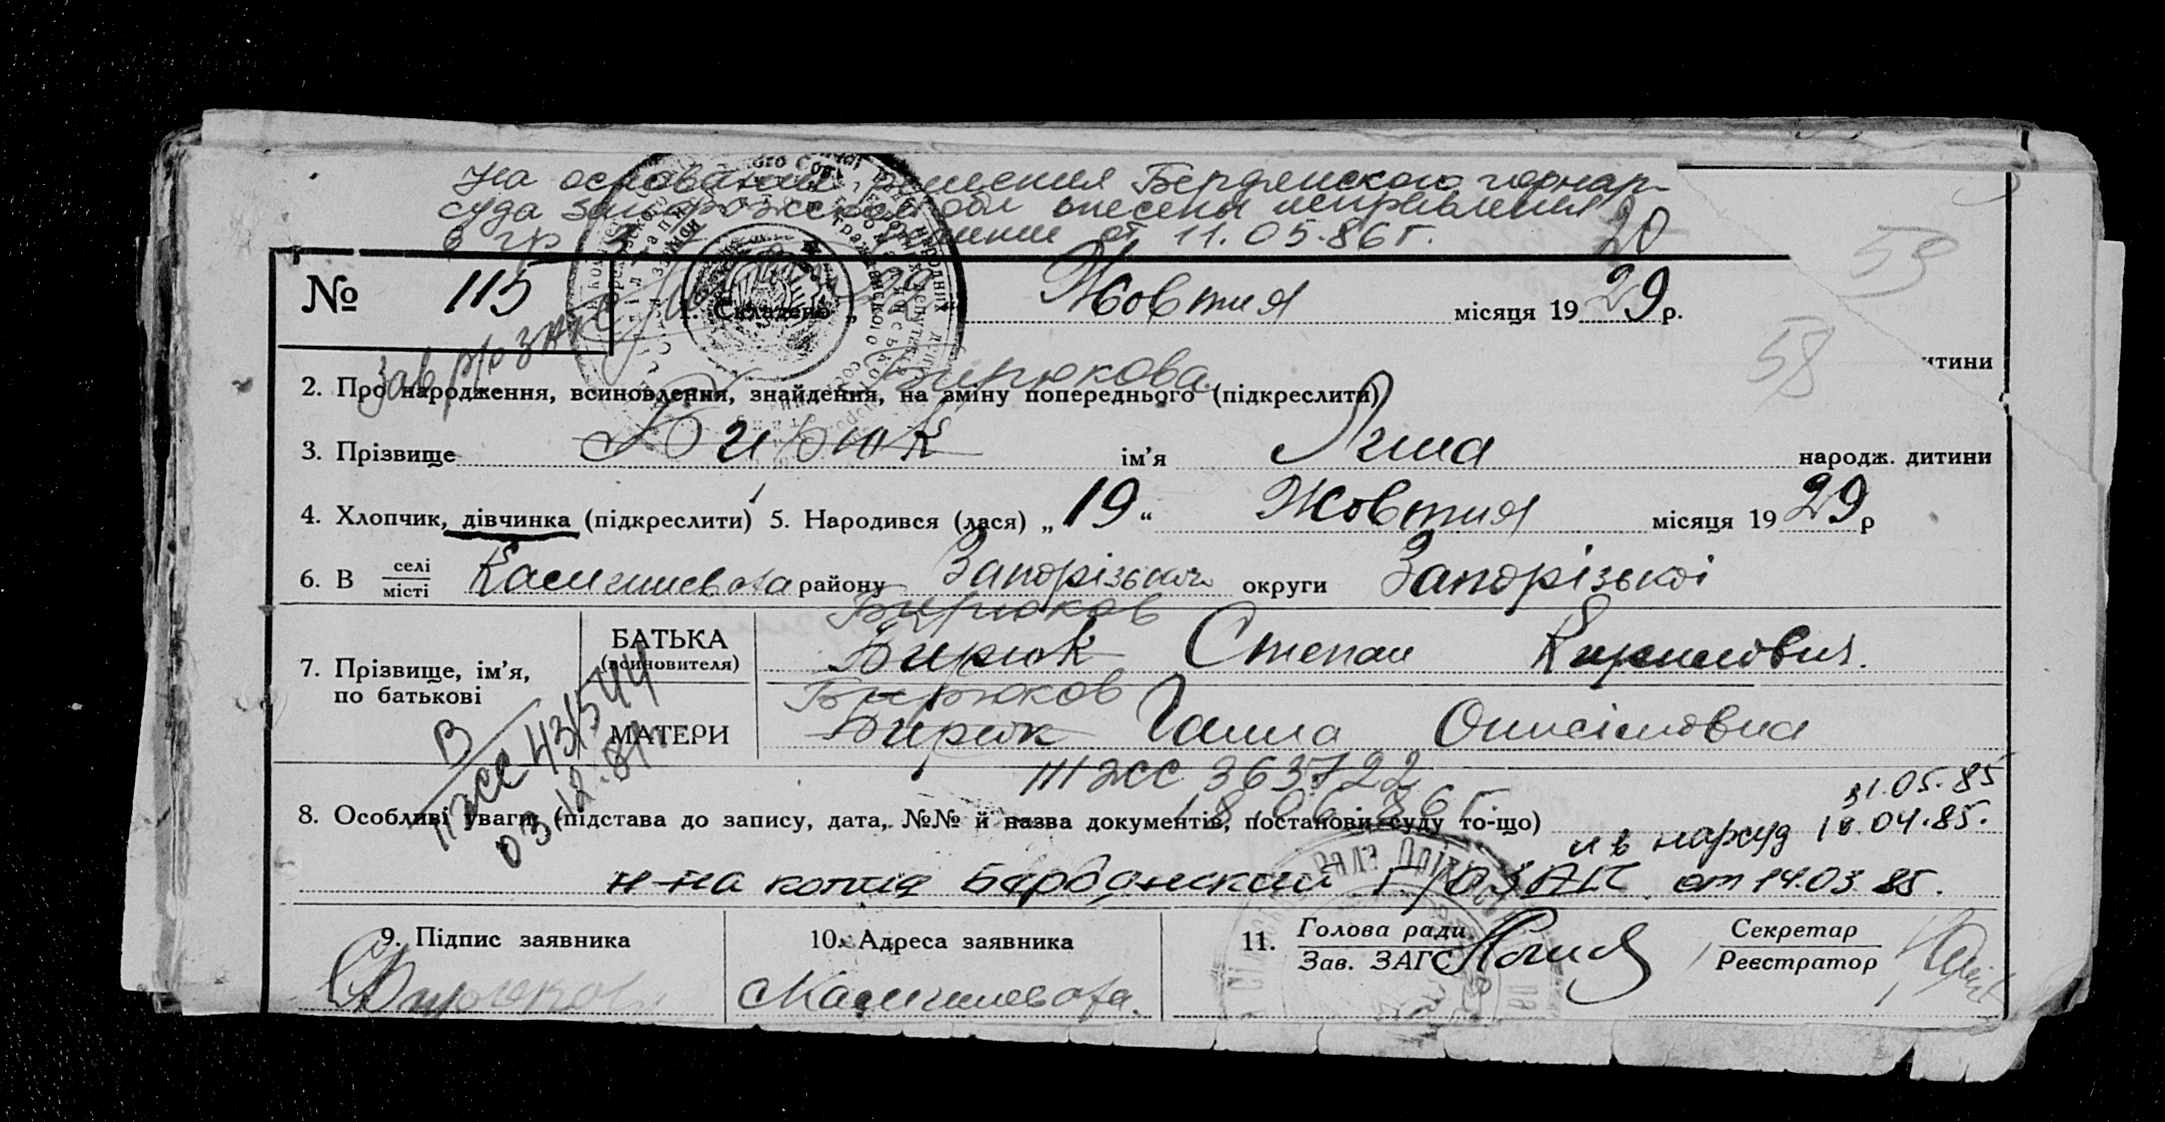 На основании решения Бердянского горнар-
суда Запорожской обл внесены исправления
в гр 3 от 11.05.86 г.
20
53
№ 115
1. Складено „ Жовтня місяця 1929 р.
Зав р/о загс
58
итини
Бирюкова
2. Про народження, всиновлення, знайдення, на зміну попереднього (підкреслити)
3. Прізвище Бирюк ім'я Ліна народж. дитини
4. Хлопчик, дівчинка (підкреслити) 5. Народився (лася) „19“ Жовтня місяця 1929 р
6. В селі місті району Запорізького округи Запорізької
Бирюков
7. Прізвище, ім'я, по батькові
БАТЬКА (всиновителя) Бирюк Степан Кирилович.
Бирюков
МАТЕРИ Бирюк Ганна Онисімовна
В
ІІ ЖС 431544
03.12.81
III ЖС 363722
18.06.86 г
31.05.85
8. Особливі уваги (підстава до запису, дата, №№ й назва документів, постанови суду то-що)
и в нарсуд 18.04.85.
н-на копия Бердянский г/ОЗАГС от 14.03.85.
9. Підпис заявника
10. Адреса заявника
11. Голова ради
Зав. ЗАГС
Секретар
Реєстратор
Бирюков